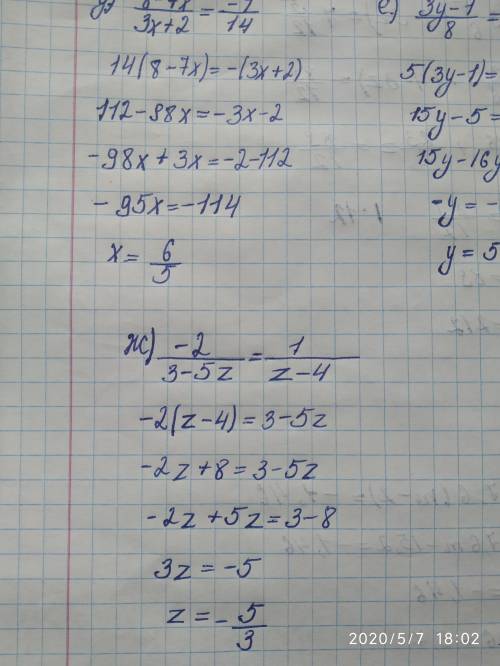 (8-7x)/(3x+2) = -1/14
14(8-7x)=-(3x+2)
112-98x=-3x-2
-98x+3x=-2-112
-95x=-114
x= 6/5
ж) -2/(3-5z) = 1/(z-4)
-2(z-4)=3-5z
-2z+8=3-5z
-2z+5z=3-8
3z=-5
z=- 5/3
е) (3y-1)/8 =
5(3y-1)=
15y-5=
15y-16y
-y=-
y=5
2020/5/7 18:02